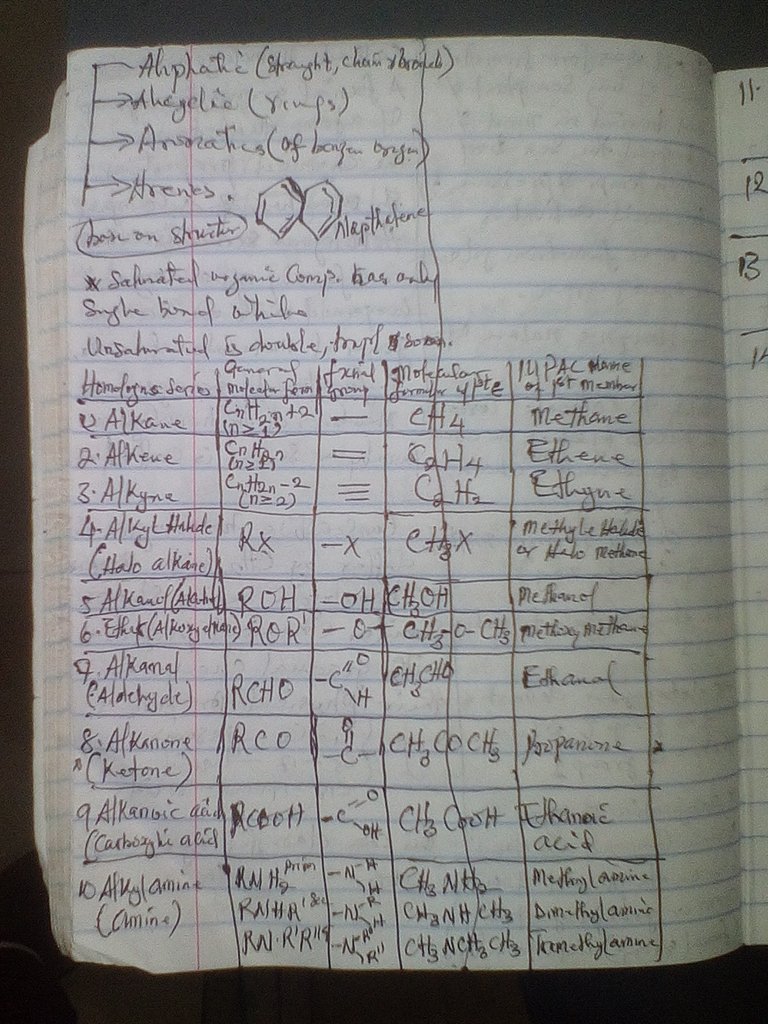 Aliphatic (straight, chain & branch)
Alicyclic (rings)
Aromatics (of benzen origin)
Arenes.
Napthalene
base on structur
* Saturated organic Comp. has only
Single bond while
Unsaturated is double, tripl
Homologous series General molecular form fxnal group Molecular formular 1st IUPAC Name of 1st member
1) Alkane CnH2n+2 (n≥1) — CH4 Methane
2. Alkene CnH2n = C2H4 Ethene
3. Alkyne CnH2n-2 (n≥2) ≡ C2H2 Ethyne
4. Alkyl Halide (Halo alkane) RX -X CH3X Methyle Halide or Halo Methane
5 Alkanol ROH -OH CH3OH Methanol
6. Ether ROR' -O- CH3-O-CH3 Methoxy Methane
7. Alkanal (Aldehyde) RCHO -C=O H CH3CHO Ethanal
8. Alkanone (Ketone) RCO O -C- CH3COCH3 Propanone
9 Alkanoic acid (Carboxylic acid RCOOH -C=O OH CH3COOH Ethanoic acid
10 Alkylamine (amine) RNH2 Prim -N-H H CH3NH2 Methylamine
RNHR' Sec -N-R H CH3NHCH3 Dimethylamine
RN.R'R'' -N-R' R'' CH3NCH3CH3 Trimethylamine
11.
12
13